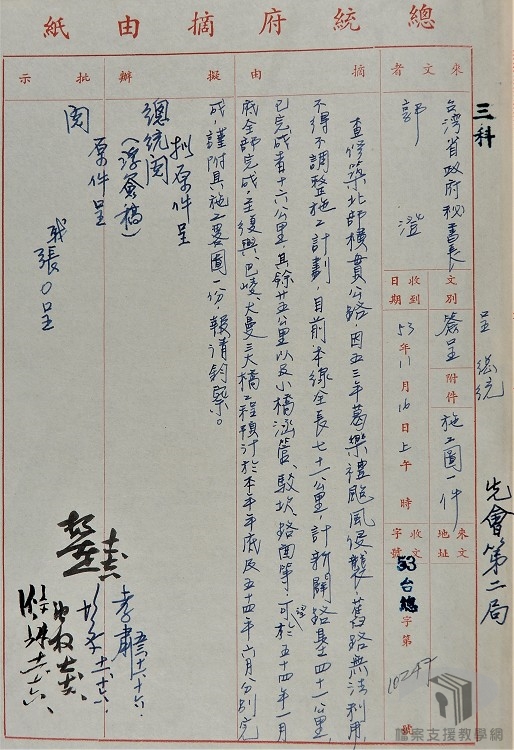 總統府摘由紙
三科
呈 總統
先會第二局
來文者
台灣省政府秘書長
郭 澄
文別
簽呈
附件
施工圖一件
來文地址
收到日期
53年11月16日上午 時
收文字號
53台總字第10247號
摘由
查修築北部橫貫公路，因五三年葛樂禮颱風侵襲，舊路無法利用，
不得不調整施工計劃，目前本線全長七十一公里，計新闢路基四十一公里，
已完成者十六公里，其餘廿五公里以及小橋涵管、駁坎、路面等，可望於五十四年一月
底全部完成，至復興、巴崚、大曼三大橋工程預計於本年年底及五十四年六月分別完
成，謹附具施工畧圖一份，報請鈞詧。
擬辦
擬原件呈
總統閱
(浮簽稿)
批示
原件呈
閱
職張○呈
檔案支援教學網